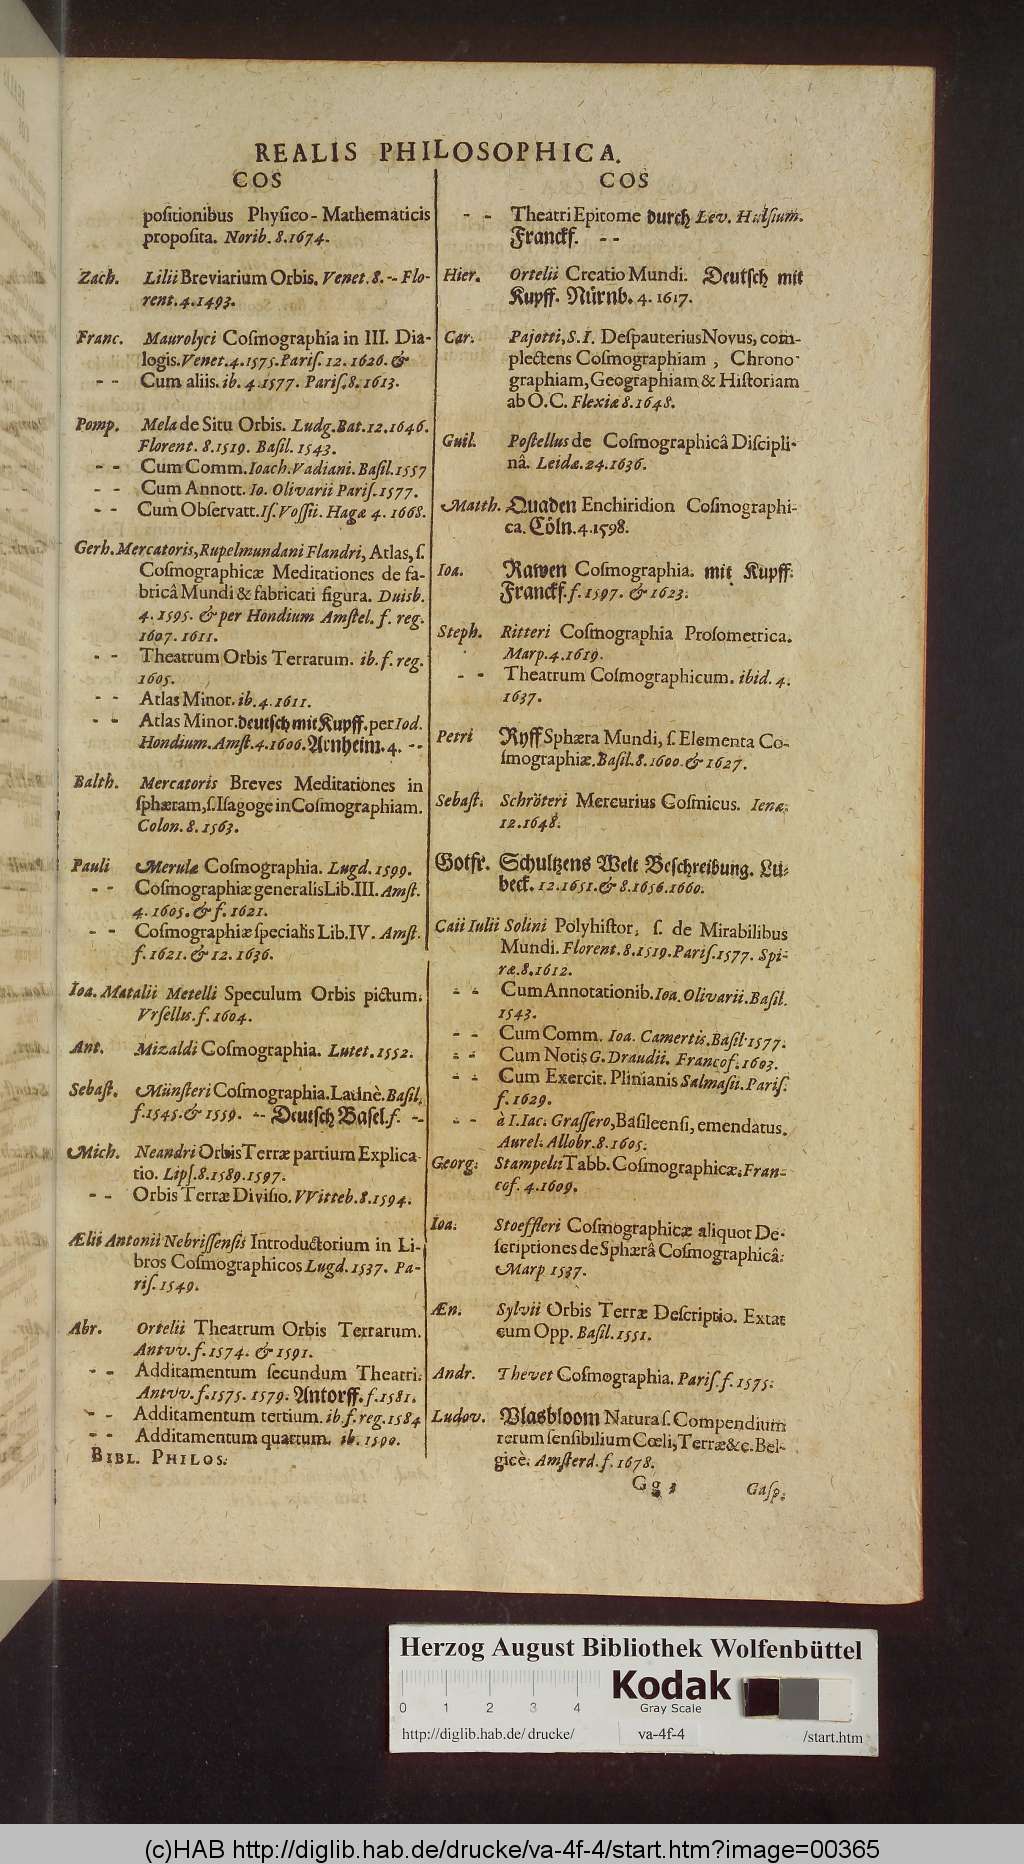 REALIS PHILOSOPHICA.
COS
poſitionibus Phyſico-Mathematicis
propoſita. Norib. 8. 1674.
Zach. Lilii Breviarium Orbis. Venet. 8. -- Flo-
rent. 4. 1493.
Franc. Maurolyci Coſmographia in III. Dia-
logis. Venet. 4. 1575. Pariſ. 12. 1626. &
- - Cum aliis. ib. 4. 1577. Pariſ. 8. 1613.
Pomp. Mela de Situ Orbis. Ludg. Bat. 12. 1646.
Florent. 8. 1519. Baſil. 1543.
- - Cum Comm. Ioach. Vadiani. Baſil. 1557
- - Cum Annott. Io. Olivarii Pariſ. 1577.
- - Cum Obſervatt. Iſ. Voſſii. Hagæ 4. 1668.
Gerh. Mercatoris, Rupelmundani Flandri, Atlas, ſ.
Coſmographicæ Meditationes de fa-
bricâ Mundi & fabricati figura. Duisb.
4. 1595. & per Hondium Amſtel. f. reg.
1607. 1611.
- - Theatrum Orbis Terrarum. ib. f. reg.
1605.
- - Atlas Minor. ib. 4. 1611.
- - Atlas Minor. deutſch mit Kupff. per Iod.
Hondium. Amſt. 4. 1606. Arnheim. 4. --
Balth. Mercatoris Breves Meditationes in
ſphæram, ſ. Iſagoge in Coſmographiam.
Colon. 8. 1563.
Pauli Merulæ Coſmographia. Lugd. 1599.
- - Coſmographiæ generalis Lib. III. Amſt.
4. 1605. & f. 1621.
- - Coſmographiæ ſpecialis Lib. IV. Amſt.
f. 1621. & 12. 1636.
Ioa. Matalii Metelli Speculum Orbis pictum.
Vrſellus. f. 1604.
Ant. Mizaldi Coſmographia. Lutet. 1552.
Sebaſt. Münſteri Coſmographia. Latinè. Baſil.
f. 1545. & 1559. -- Deutſch Baſel. f. --
Mich. Neandri Orbis Terræ partium Explica-
tio. Lipſ. 8. 1589. 1597.
- - Orbis Terræ Diviſio. VVitteb. 8. 1594.
Ælii Antonii Nebriſſenſis Introductorium in Li-
bros Coſmographicos Lugd. 1537. Pa-
riſ. 1549.
Abr. Ortelii Theatrum Orbis Terrarum.
Antvv. f. 1574. & 1591.
- - Additamentum ſecundum Theatri.
Antvv. f. 1575. 1579. Antorff. f. 1581.
- - Additamentum tertium. ib. f. reg. 1584
- - Additamentum quartum. ib. 1590.
BIBL. PHILOS.
COS
- - Theatri Epitome durch Lev. Hulſium.
Franckf. --
Hier. Ortelii Creatio Mundi. Deutſch mit
Kupff. Nürnb. 4. 1617.
Car. Pajotti, S. I. Deſpauterius Novus, com-
plectens Coſmographiam, Chrono-
graphiam, Geographiam & Hiſtoriam
ab O. C. Flexiæ 8. 1648.
Guil. Poſtellus de Coſmographicâ Diſcipli-
nâ. Leidæ. 24. 1636.
Matth. Quaden Enchiridion Coſmographi-
ca. Cöln. 4. 1598.
Ioa. Rawen Coſmographia. mit Kupff.
Franckf. f. 1597. & 1623.
Steph. Ritteri Coſmographia Proſometrica.
Marp. 4. 1619.
- - Theatrum Coſmographicum. ibid. 4.
1637.
Petri Ryff Sphæra Mundi, ſ. Elementa Co-
ſmographiæ. Baſil. 8. 1600. & 1627.
Sebaſt. Schröteri Mercurius Coſmicus. Ienæ.
12. 1648.
Gotfr. Schultzens Welt Beſchreibung. Lü-
beck. 12. 1651. & 8. 1656. 1660.
Caii Iulii Solini Polyhiſtor, ſ. de Mirabilibus
Mundi. Florent. 8. 1519. Pariſ. 1577. Spi-
ræ. 8. 1612.
- - Cum Annotationib. Ioa. Olivarii. Baſil.
1543.
- - Cum Comm. Ioa. Camertis. Baſil. 1577.
- - Cum Notis G. Draudii. Francof. 1603.
- - Cum Exercit. Plinianis Salmaſii. Pariſ.
f. 1629.
- - à I. Iac. Graſſero, Baſileenſi, emendatus.
Aurel. Allobr. 8. 1605.
Georg. Stampelii Tabb. Coſmographicæ. Fran-
cof. 4. 1609.
Ioa. Stoeffleri Coſmographicæ aliquot De-
ſcriptiones de Sphærâ Coſmographicâ.
Marp 1537.
Æn. Sylvii Orbis Terræ Deſcriptio. Extat
cum Opp. Baſil. 1551.
Andr. Thevet Coſmographia. Pariſ. f. 1575.
Ludov. Vlasbloom Natura ſ. Compendium
rerum ſenſibilium Cœli, Terræ &c. Bel-
gicè. Amſterd. f. 1678.
Gg 3 Gaſp.
Herzog August Bibliothek Wolfenbüttel
0 1 2 3 4
Kodak
Gray Scale
http://diglib.hab.de/drucke/ va-4f-4 /start.htm
(c)HAB http://diglib.hab.de/drucke/va-4f-4/start.htm?image=00365